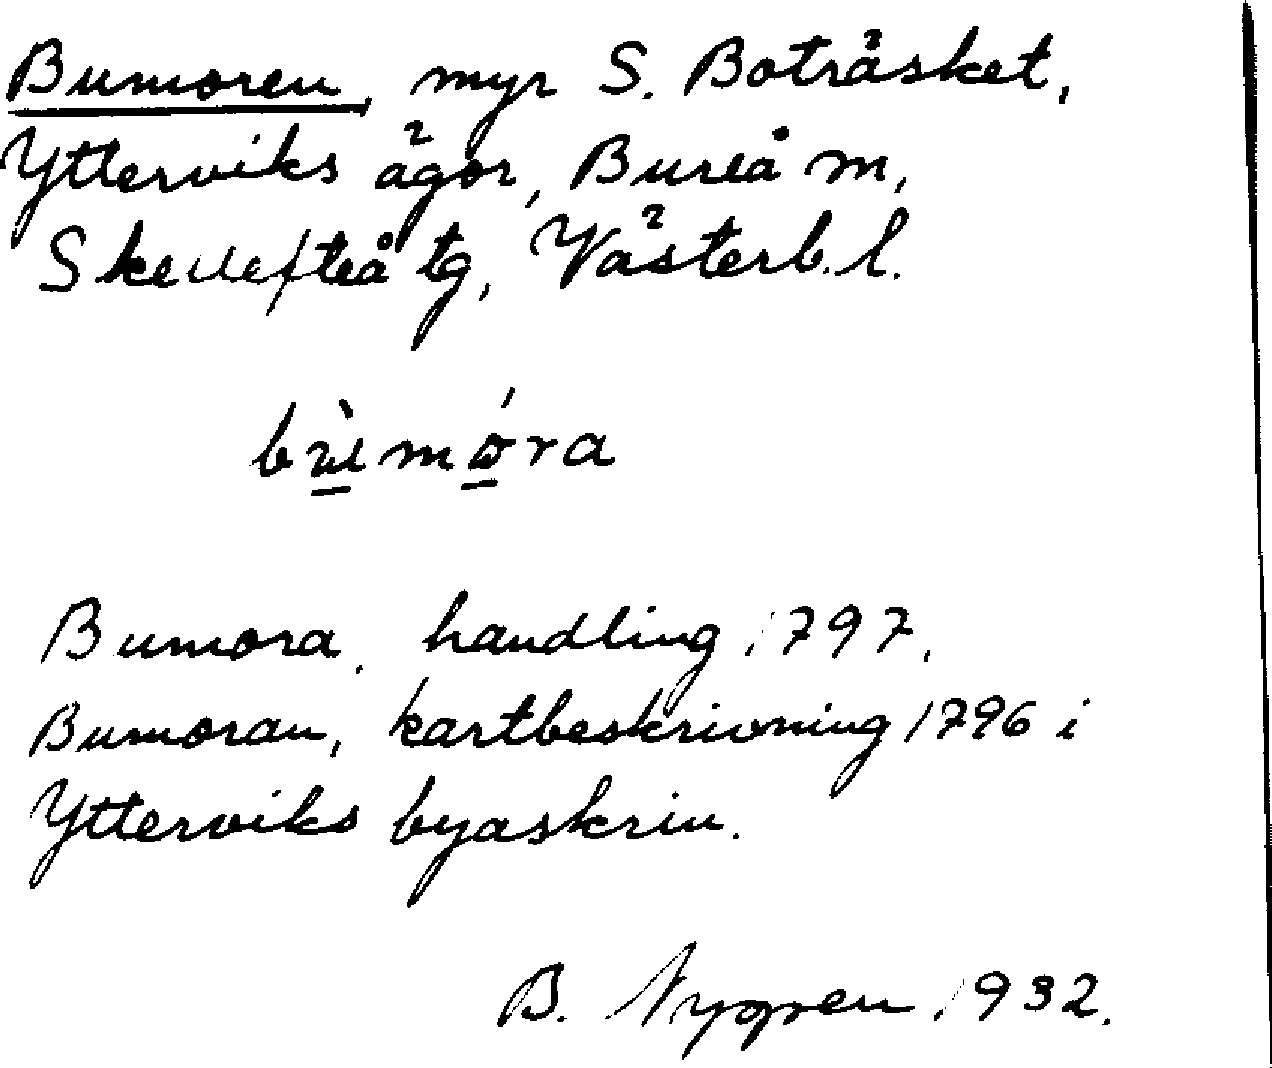 Bumoren, myr S. Boträsket,
Ytterviks ägor, Bureå m,
Skellefteå tg, Västerb. l.
bùmóra
Bumora, handling 1797,
Bumoran, kartbeskrivning 1796 i
Ytterviks byaskrin.
B. Nygren 1932.